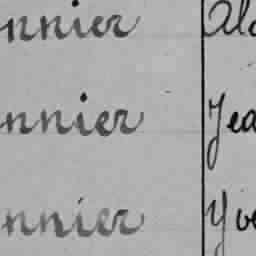 nnier Alo
nnier Jea
nnier Yve